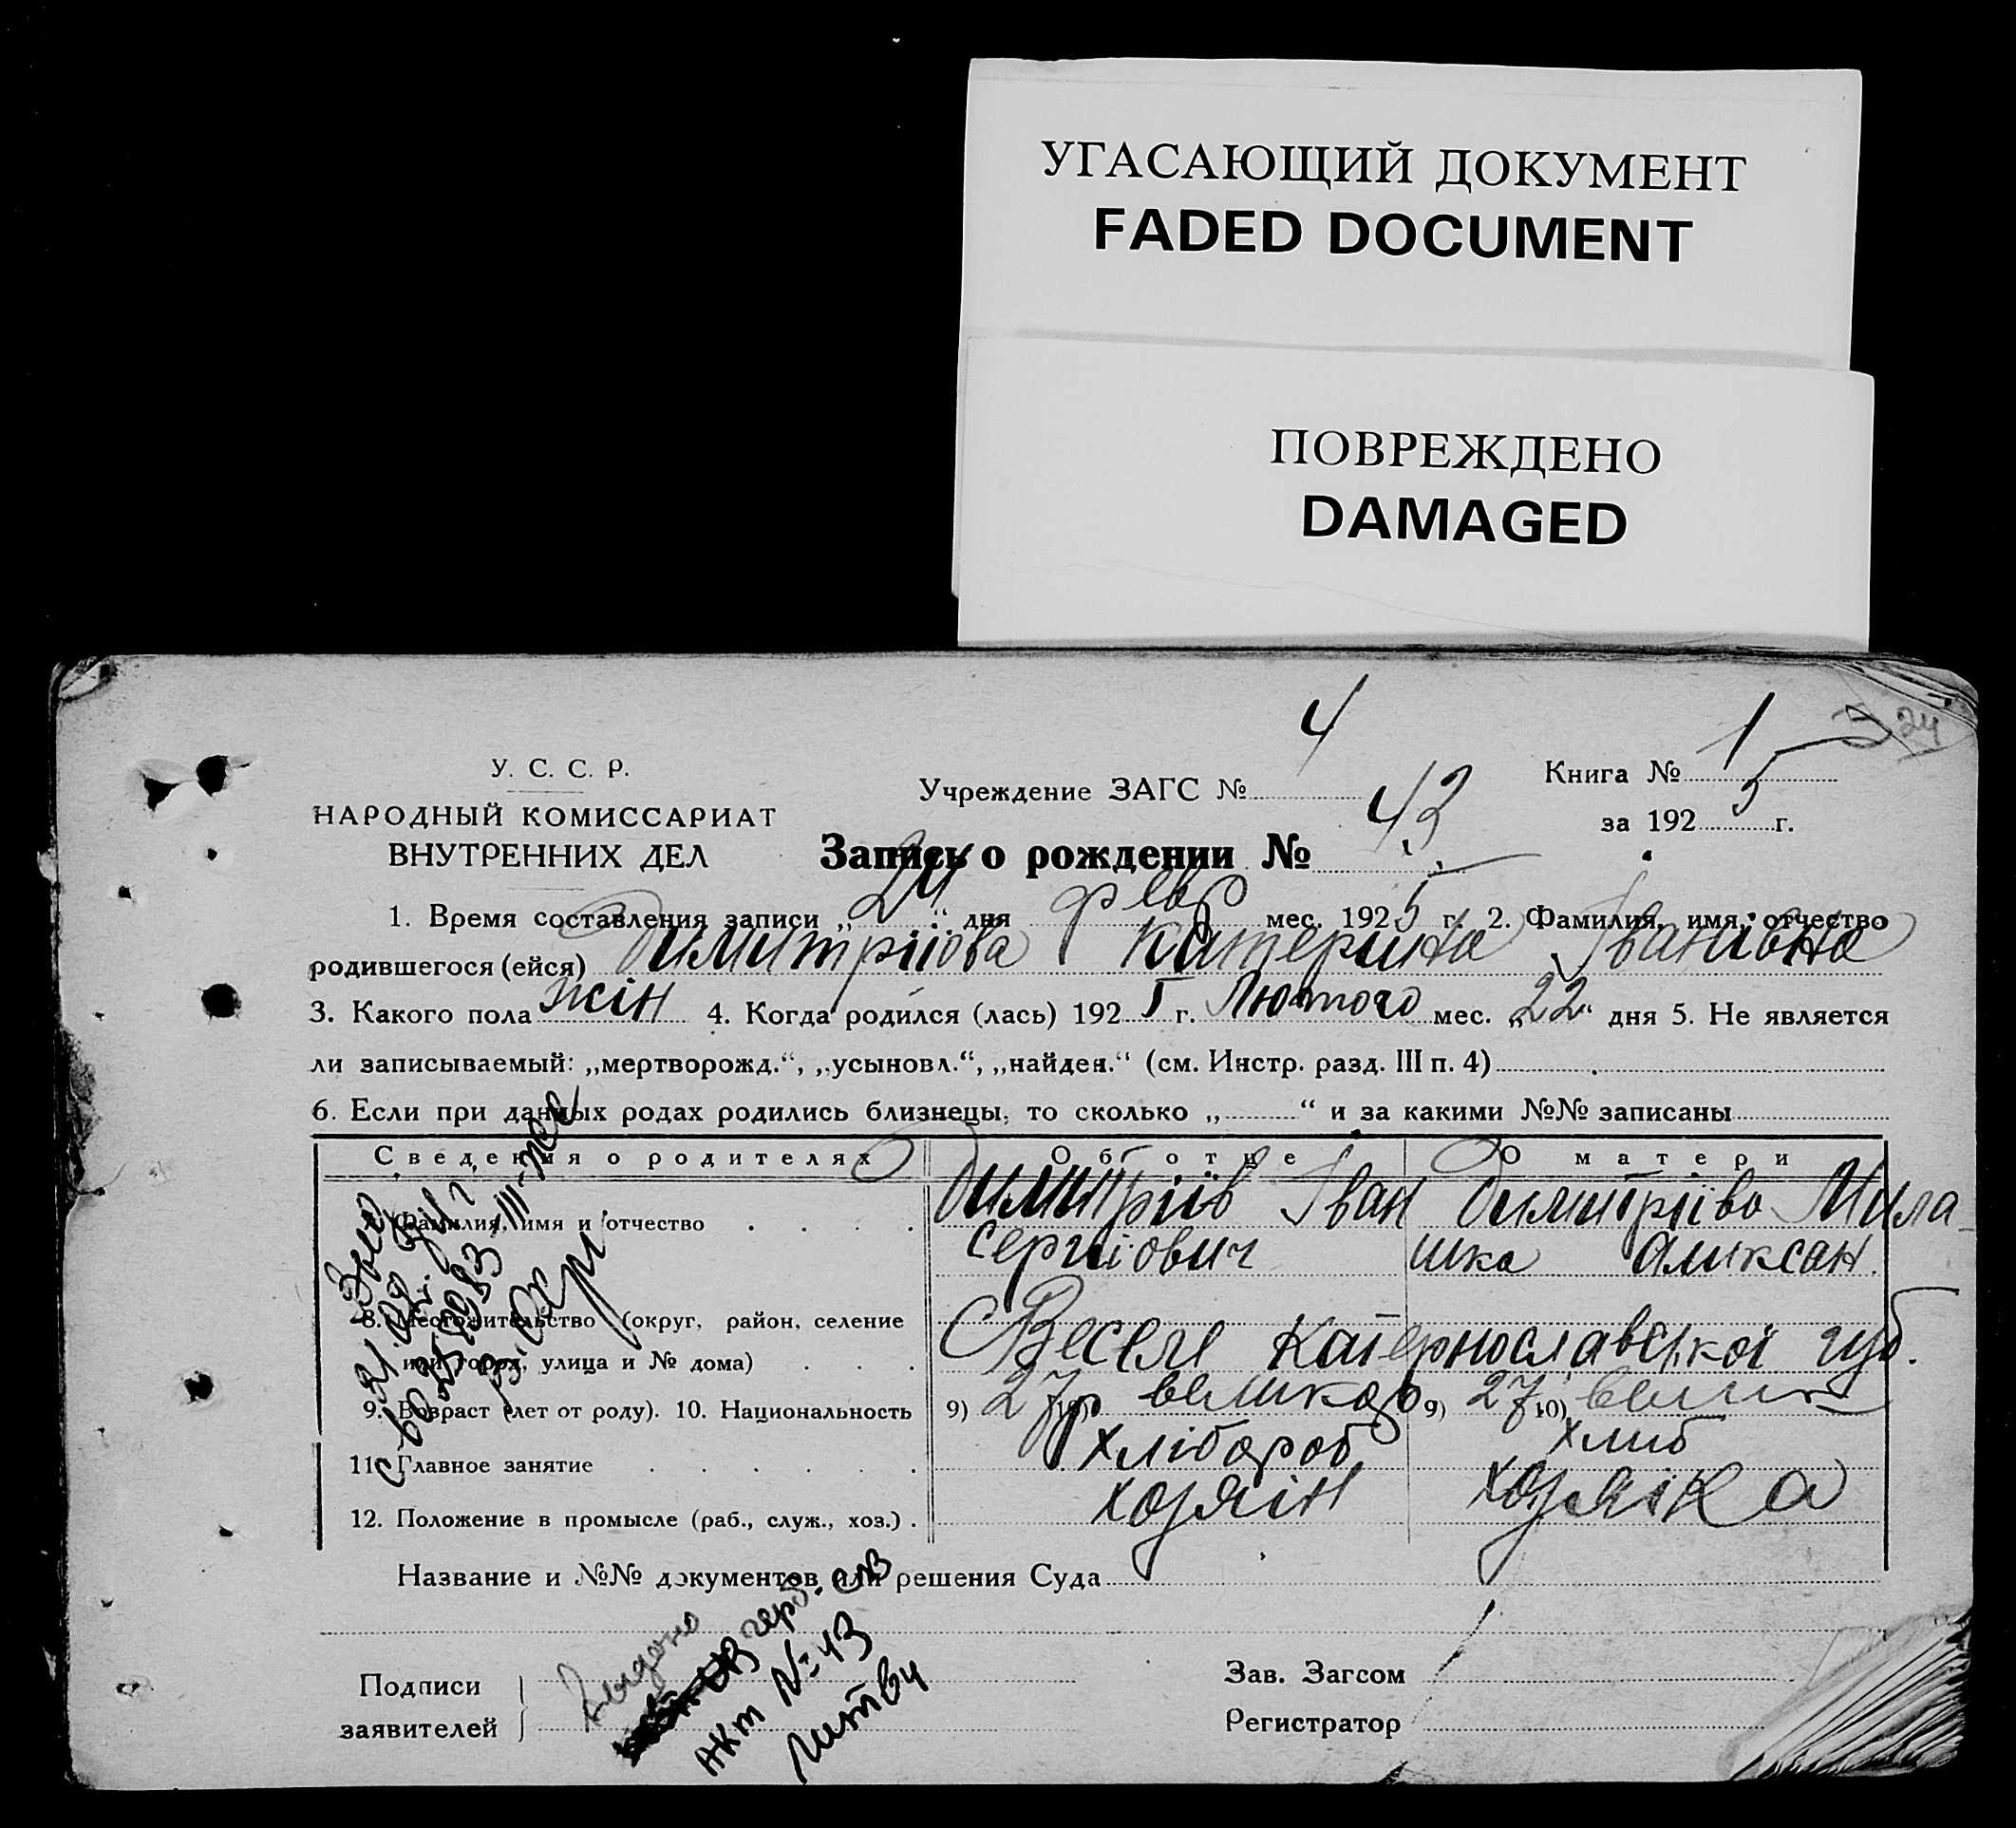 УГАСАЮЩИЙ ДОКУМЕНТ
FADED DOCUMENT
ПОВРЕЖДЕНО
DAMAGED
5 24
У. С. С. Р.
НАРОДНЫЙ КОМИССАРИАТ
ВНУТРЕННИХ ДЕЛ
Учреждение ЗАГС № 4
Книга № 1
за 1925 г.
Запись о рождении № 43
1. Время составления записи „24“ дня февр мес. 1925 г. 2. Фамилия, имя, отчество
родившегося (ейся) Димитріїова Катерина Іванівна
3. Какого пола жін 4. Когда родился (лась) 1925 г. Лютого мес. „22“ дня 5. Не является
ли записываемый: „мертворожд.“, „усыновл.“, „найден.“ (см. Инстр. разд. III п. 4)
6. Если при данных родах родились близнецы, то сколько „ “ и за какими №№ записаны
Сведения о родителях Об отце О матери
7. Фамилия, имя и отчество Димитріїв Іван Димитріїва Мила-
Сергіїович шка Аликсан.
8. Местожительство (округ, район, селение
или город, улица и № дома) С Веселе Катернославської губ.
9. Возраст (лет от роду). 10. Национальность 9) 27р 10) великор 9) 27 10) велик
11. Главное занятие хлібороб хліб
12. Положение в промысле (раб., служ., хоз.) хозяїн хозяїка
Название и №№ документов или решения Суда
Подписи
заявителей
Зав. Загсом
Регистратор
Выдено
герб. св
Акт № 43